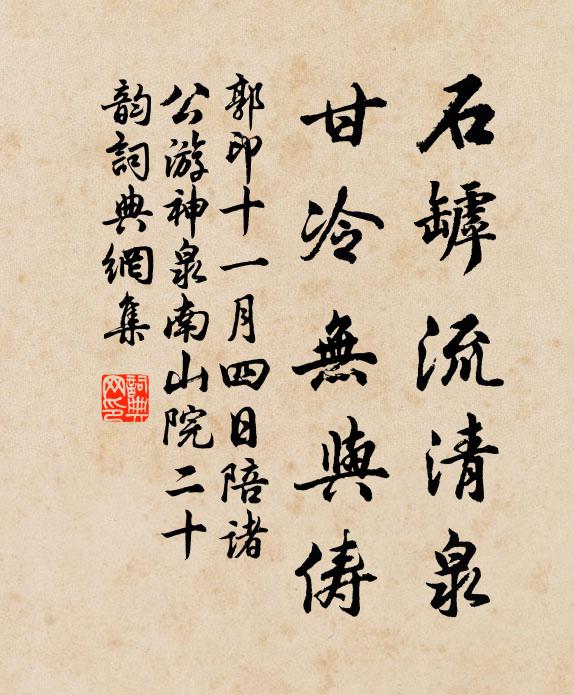 石罅流清泉
甘冷無與儔
郭印十一月四日陪诸
公游神泉南山院二十
韵詞典網集
詞典網印